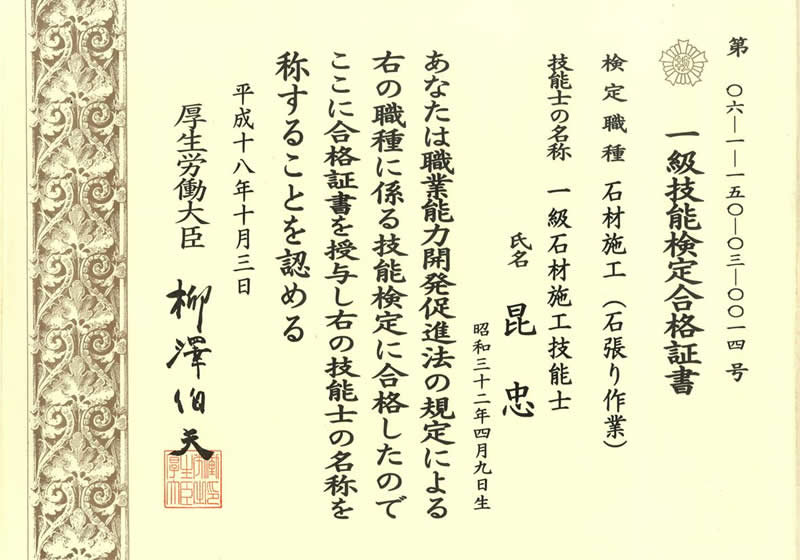 第〇六―一―一五〇―〇三―〇〇一四号
一級技能検定合格証書
検定職種 石材施工(石張り作業)
技能士の名称 一級石材施工技能士
氏名 昆 忠
昭和三十二年四月九日生
あなたは職業能力開発促進法の規定による
右の職種に係る技能検定に合格したので
ここに合格証書を授与し右の技能士の名称を
称することを認める
平成十八年十月三日
厚生労働大臣 柳澤伯夫